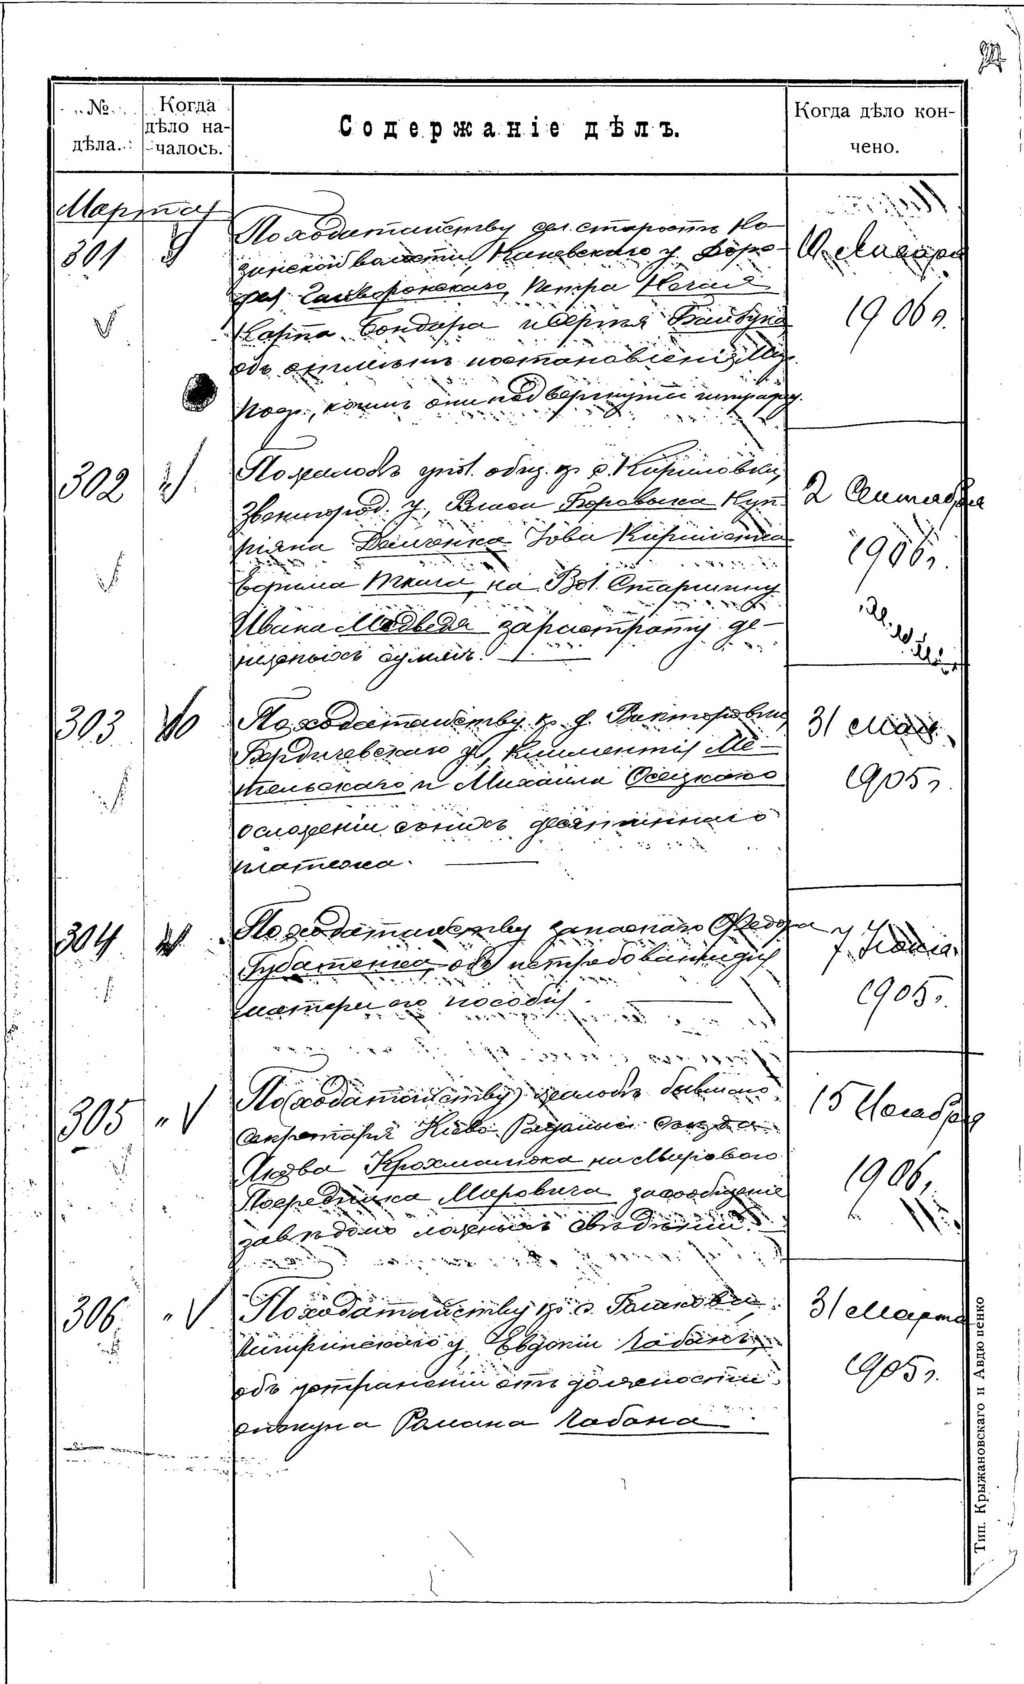 № дѣла.
Когда дѣло началось.
Содержаніе дѣлъ.
Когда дѣло кончено.
Марта
301
По ходатайству сел. старостъ Ко-
зинской волости, Каневскаго у.
Гайворонскаго, Петра Нечая
Карпа Бондара и Сергѣя Байбуза
объ отмѣнѣ постановленія Мир.
Поср., коимъ они подвергнуты штрафу.
Января
1906 г.
302
По жалобѣ упол. общ. кр. с. Кириловки,
Звенигород. у., Боровика Куп-
ріяна Демченка Іова Кириленка
Ефима Ткача, на Вол. Старшину
Ивана Медведя за растрату де-
нежныхъ суммъ.
2 Сентября
1906 г.
303
По ходатайству кр. д. Викторовки,
Бердичевскаго у., Климентія Ме-
тельскаго и Михаила Осецкаго
о сложеніи съ нихъ десятиннаго
платежа.
31 Мая
1905 г.
304
По ходатайству запаснаго Федора
Губатенка, объ истребованіи для
матери его пособія.
7 Іюня
1905 г.
305
" V
По (ходатайству) жалобѣ бывшаго
секретаря Кіево-Радомысл. Съѣзда
Якова Крохмалюка на Мирового
Посредника Маровича за сообщеніе
завѣдомо ложныхъ свѣдѣній.
15 Ноября
1906 г.
306
" V
По ходатайству кр. с.
Чигиринскаго у. Евдокіи Чабанъ,
объ устраненіи отъ должности
опекуна Романа Чабана.
31 Марта
1905 г.
Тип. Крыжановскаго и Авдюшенко